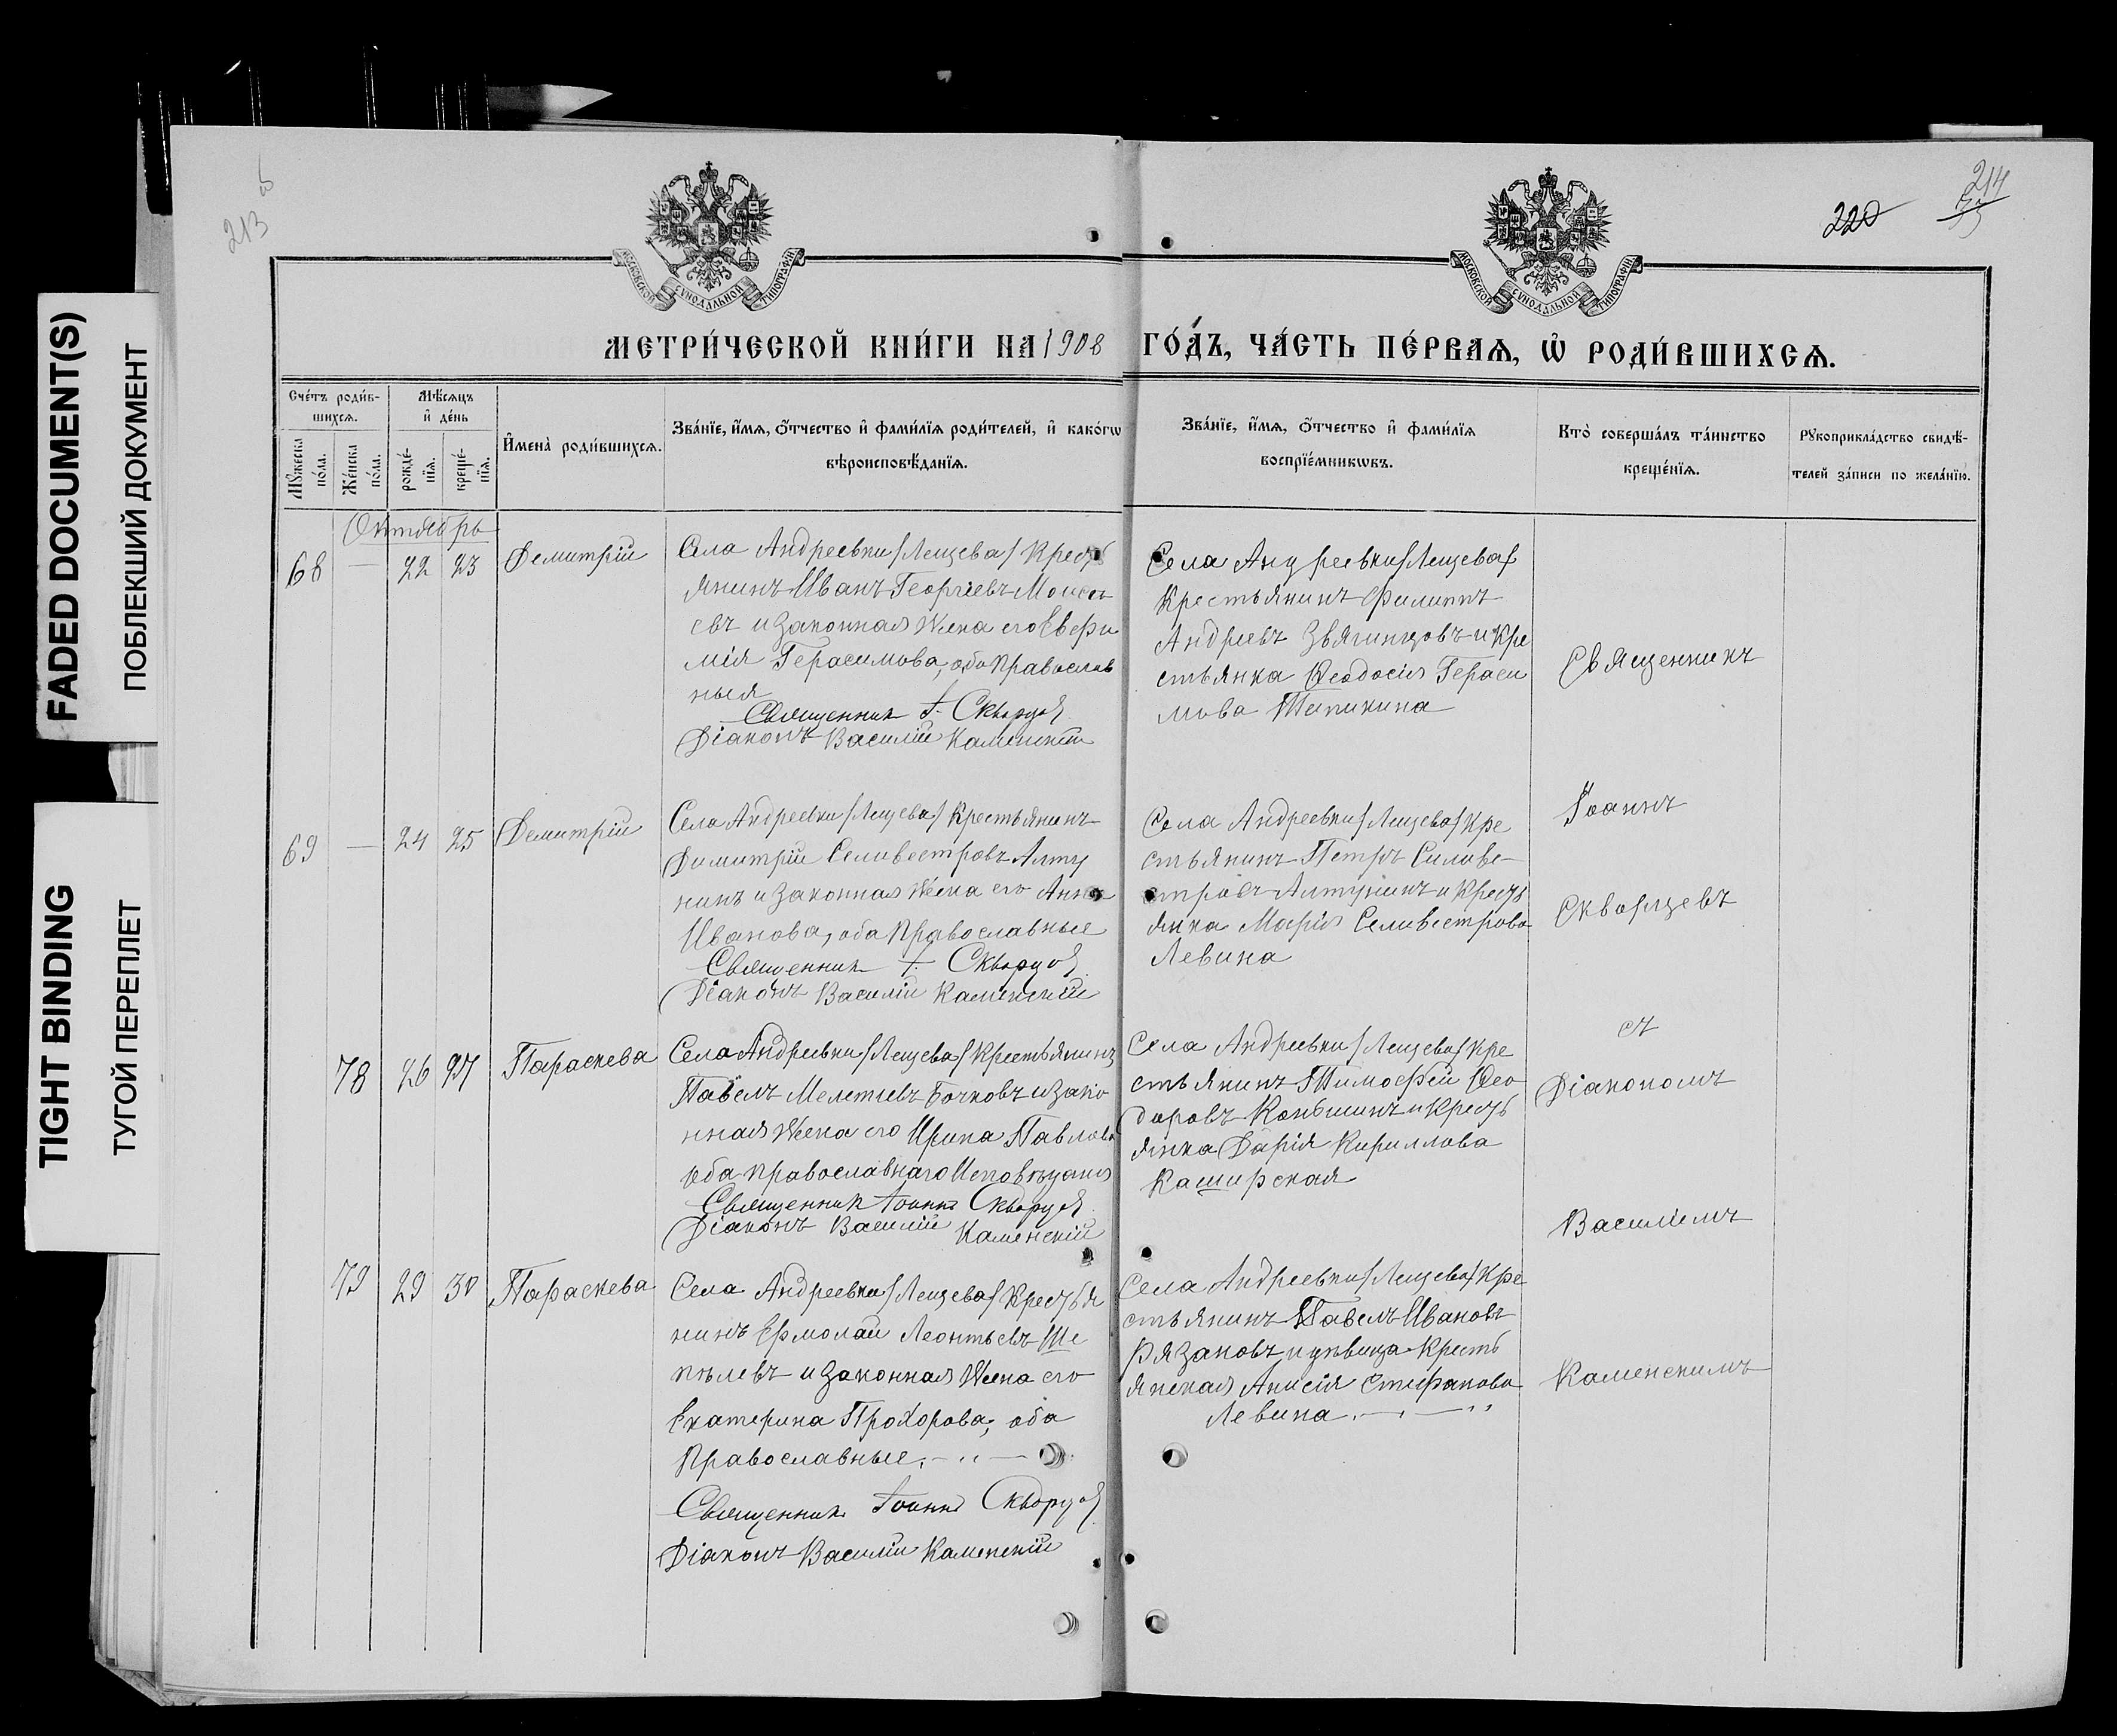 FADED DOCUMENT(S)
ПОБЛЕКШИЙ ДОКУМЕНТ
TIGHT BINDING
ТУГОЙ ПЕРЕПЛЕТ
213 об
220
214
МОСКОВСКОЙ СѴНОДАЛЬНОЙ ТИПОГРАФІИ
МОСКОВСКОЙ СѴНОДАЛЬНОЙ ТИПОГРАФІИ
МЕТРИ́ЧЕСКОЙ КНИ́ГИ НА 1908 ГО́ДЪ, ЧА́СТЬ ПЕ́РВАѦ, Ѡ҆ РОДИ́ВШИХСѦ.
Сче́тъ роди́в-
шихсѧ.
Мꙋ́жеска по́ла.
Же́нска по́ла.
Мѣ́сѧцъ
и҆ де́нь
рожде́-
нїѧ.
креще́-
нїѧ.
И҆мена̀ роди́вшихсѧ.
Зва́нїе, и҆́мѧ, ѻ҆́тчество и҆ фами́лїѧ роди́телей, и҆ како́гѡ
вѣроисповѣ́данїѧ.
Зва́нїе, и҆́мѧ, ѻ҆́тчество и҆ фами́лїѧ
воспрїе́мникѡвъ.
Кто̀ соверша́лъ та́инство
креще́нїѧ.
Рꙋкоприкла́дство свидѣ́-
телей за́писи по жела́нїю.
Октябрь
68 — 22 23 Демитрій
Села Андреевки /Лещева/ Кресть
янинъ Иванъ Георгіевъ Моисе
евъ и законная жена его Евфи
мія Герасимова, оба православ
ныя
Священник І. Скворцов
Діаконъ Василій Каменскій
Села Андреевки /Лещева/
Крестьянинъ Филиппъ
Андреевъ Звягинцовъ и Кре
стьянка Ѳеодосія Гераси
мова Типикина
Священникъ
69 — 24 25 Демитрій
Села Андреевки /Лещева/ Крестьянинъ
Димитрій Селивестровъ Алту
нинъ и законная жена его Анна
Иванова, оба Православные
Священник І. Скворцов
Діаконъ Василій Каменскій
Села Андреевки /Лещева/ Кре
стьянинъ Петръ Силиве-
стровъ Алтунинъ и Кресть
янка Марія Селивестрова
Левина
Іоаннъ
Скворцевъ
78 26 27 Параскева
Села Андреевки /Лещева/ Крестьянинъ
Павелъ Мелетіевъ Бочковъ и зако
нная жена его Ирина Павлова
оба православнаго Исповѣданія
Священник Іоаннъ Скворцов
Діаконъ Василій Каменскій
Села Андреевки /Лещева/ Кре
стьянинъ Тимофей Ѳео
доровъ Коньшинъ и Кресть
янка Дарія Кириллова
Каширская
съ
Діакономъ
Василіемъ
79 29 30 Параскева
Села Андреевки /Лещева/ Крестья
нинъ Ермолай Леонтьевъ Ше
пѣлевъ и законная жена его
Екатерина Прохорова, оба
Православные.
Священник Іоаннъ Скворцов
Діаконъ Василій Каменскій
Села Андреевки /Лещева/ Кре
стьянинъ Павелъ Ивановъ
Рязановъ и дѣвица Кресть
янская Анисія Стефанова
Левина
Каменскимъ